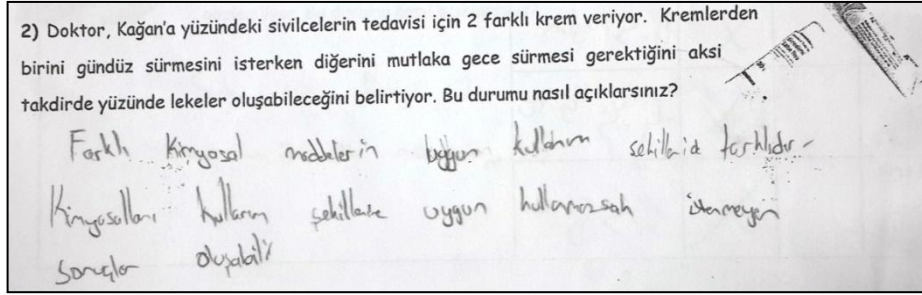 2) Doktor, Kağan'a yüzündeki sivilcelerin tedavisi için 2 farklı krem veriyor. Kremlerden
birini gündüz sürmesini isterken diğerini mutlaka gece sürmesi gerektiğini aksi
takdirde yüzünde lekeler oluşabileceğini belirtiyor. Bu durumu nasıl açıklarsınız?
Farklı kimyasal maddelerin uygun kullanım şekilleride farklıdır.
Kimyasalları kullanım şekillerine uygun kullanmazsak istenmeyen
sonuçlar oluşabilir